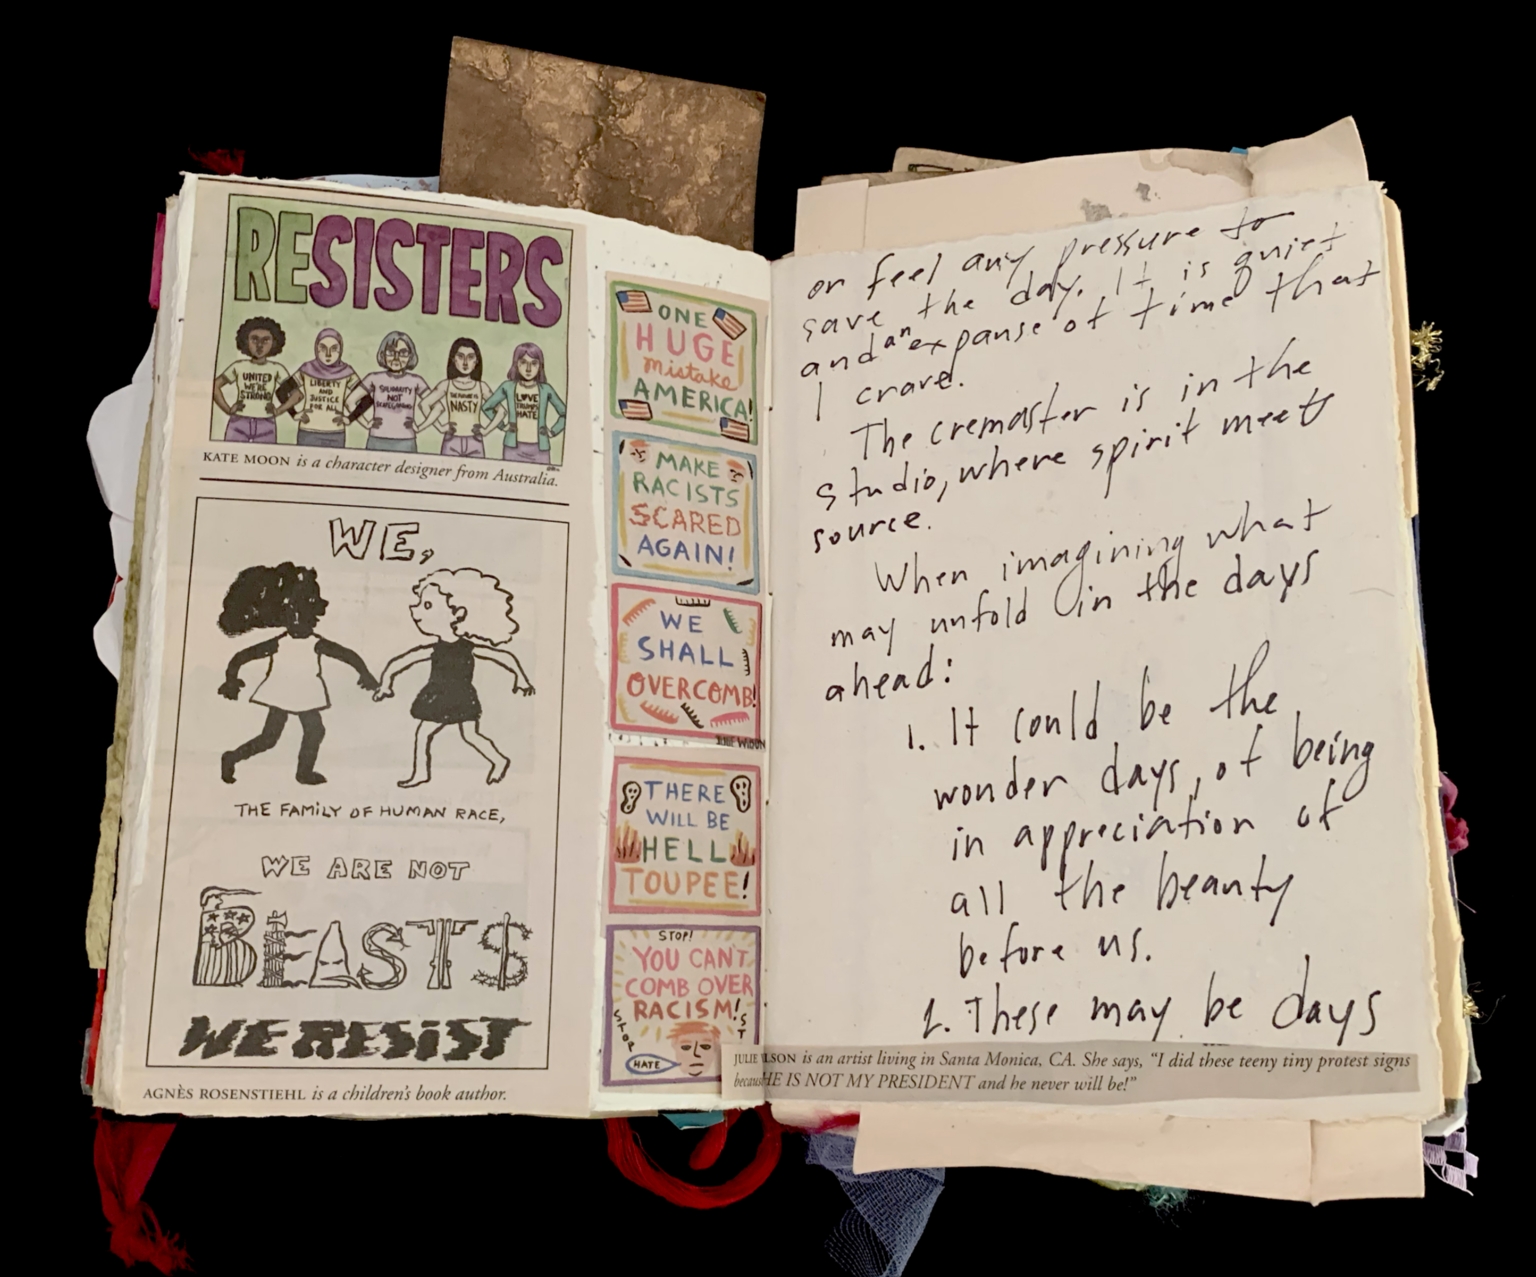 RESISTERS
UNITED
WE'RE
STRONG
LIBERTY
AND
JUSTICE
FOR ALL
SOLIDARITY
NOT
SCAPEGOATING
NASTY
LOVE
TRUMPS
HATE
KATE MOON is a character designer from Australia.
WE,
THE FAMILY OF HUMAN RACE,
WE ARE NOT
BEASTS
WE RESIST
AGNÈS ROSENSTIEHL is a children's book author.
ONE
HUGE
mistake
AMERICA!
MAKE
RACISTS
SCARED
AGAIN!
WE
SHALL
OVERCOMB!
JULIE WILSON
THERE
WILL BE
HELL
TOUPEE!
STOP!
YOU CAN'T
COMB OVER
RACISM!
STOP
ST
HATE
or feel any pressure to
save the day. It is quiet
and an expanse of time that
I crave.
The cremaster is in the
studio, where spirit meets
source.
When imagining what
may unfold in the days
ahead:
1. It could be the
wonder days, of being
in appreciation of
all the beauty
before us.
2. These may be days
JULIE LSON is an artist living in Santa Monica, CA. She says, “I did these teeny tiny protest signs
becaus HE IS NOT MY PRESIDENT and he never will be!”